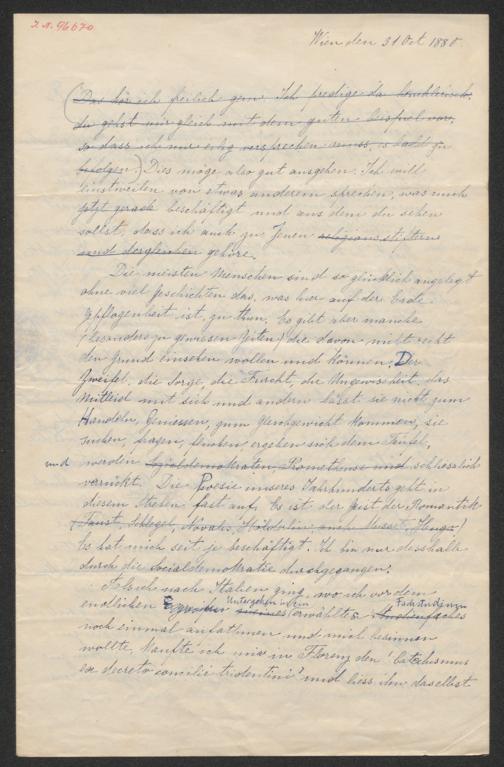 I.N. 96670
Wien den 31 Oct 1880
(Das hör ich freilich gern. Ich predige da
du gehst mir gleich mit dem guten Beispiel vor,
so dass ich nur eilig versprechen muss, es bald zu
befolgen.) Dies möge also gut ausgehen. Ich will
einstweilen von etwas anderem sprechen, was mich
jetzt gerade beschäftigt und aus dem du sehen
sollst, dass ich auch zu Jenen religionsstiftern
und desgleichen gehöre.
Die meisten Menschen sind so glücklich angelegt
ohne viel Geschichten das, was hier auf der Erde
gepflogenheit ist, zu thun. Es gibt aber manche
(besonders zu gewissen Zeiten) die davon nicht recht
den Grund einsehen wollen und können. Der
Zweifel, die Sorge, die Furcht, die Ungewissheit, das
Mitleid mit sich und andern lässt sie nicht zum
Handeln, Geniessen, zum Gleichgewicht kommen, sie
suchen, fragen, fluchen, ergeben sich dem Teufel,
und werden Socialdemokraten, Prometheuse und schliesslich
verrückt. Die Poesie unseres Jahrhunderts geht in
diesem Streben fast auf. Es ist der Geist der Romantik
(Faust, Schlegel, Novalis, Hölderlin auch Musset, Hugo)
Es hat mich seit je beschäftigt. Ich bin nur desshalb
durch die Socialdemokratie durchgegangen.
Als ich nach Italien ging, wo ich vor dem
endlichen Untergehen in ein erwähltes Fachstudium
noch einmal aufathmen und mich besinnen
wollte, kaufte ich mir in Florenz den "Catechismus
ex decreto concilii tridentini" und liess ihn daselbst